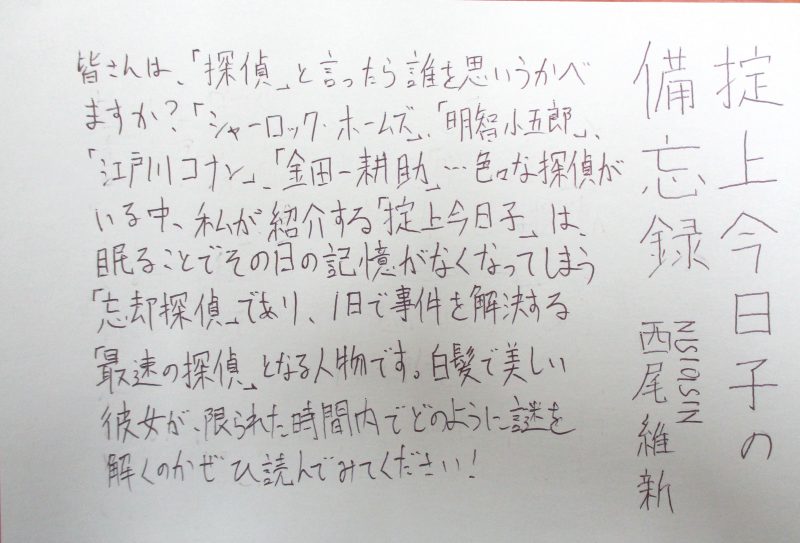 掟上今日子の
備忘録
西尾維新
NISIOISIN
皆さんは、「探偵」と言ったら誰を思いうかべ
ますか?「シャーロック・ホームズ」、「明智小五郎」、
「江戸川コナン」、「金田一耕助」…色々な探偵が
いる中、私が紹介する「掟上今日子」は、
眠ることでその日の記憶がなくなってしまう
「忘却探偵」であり、1日で事件を解決する
「最速の探偵」となる人物です。白髪で美しい
彼女が、限られた時間内でどのように謎を
解くのかぜひ読んでみてください!